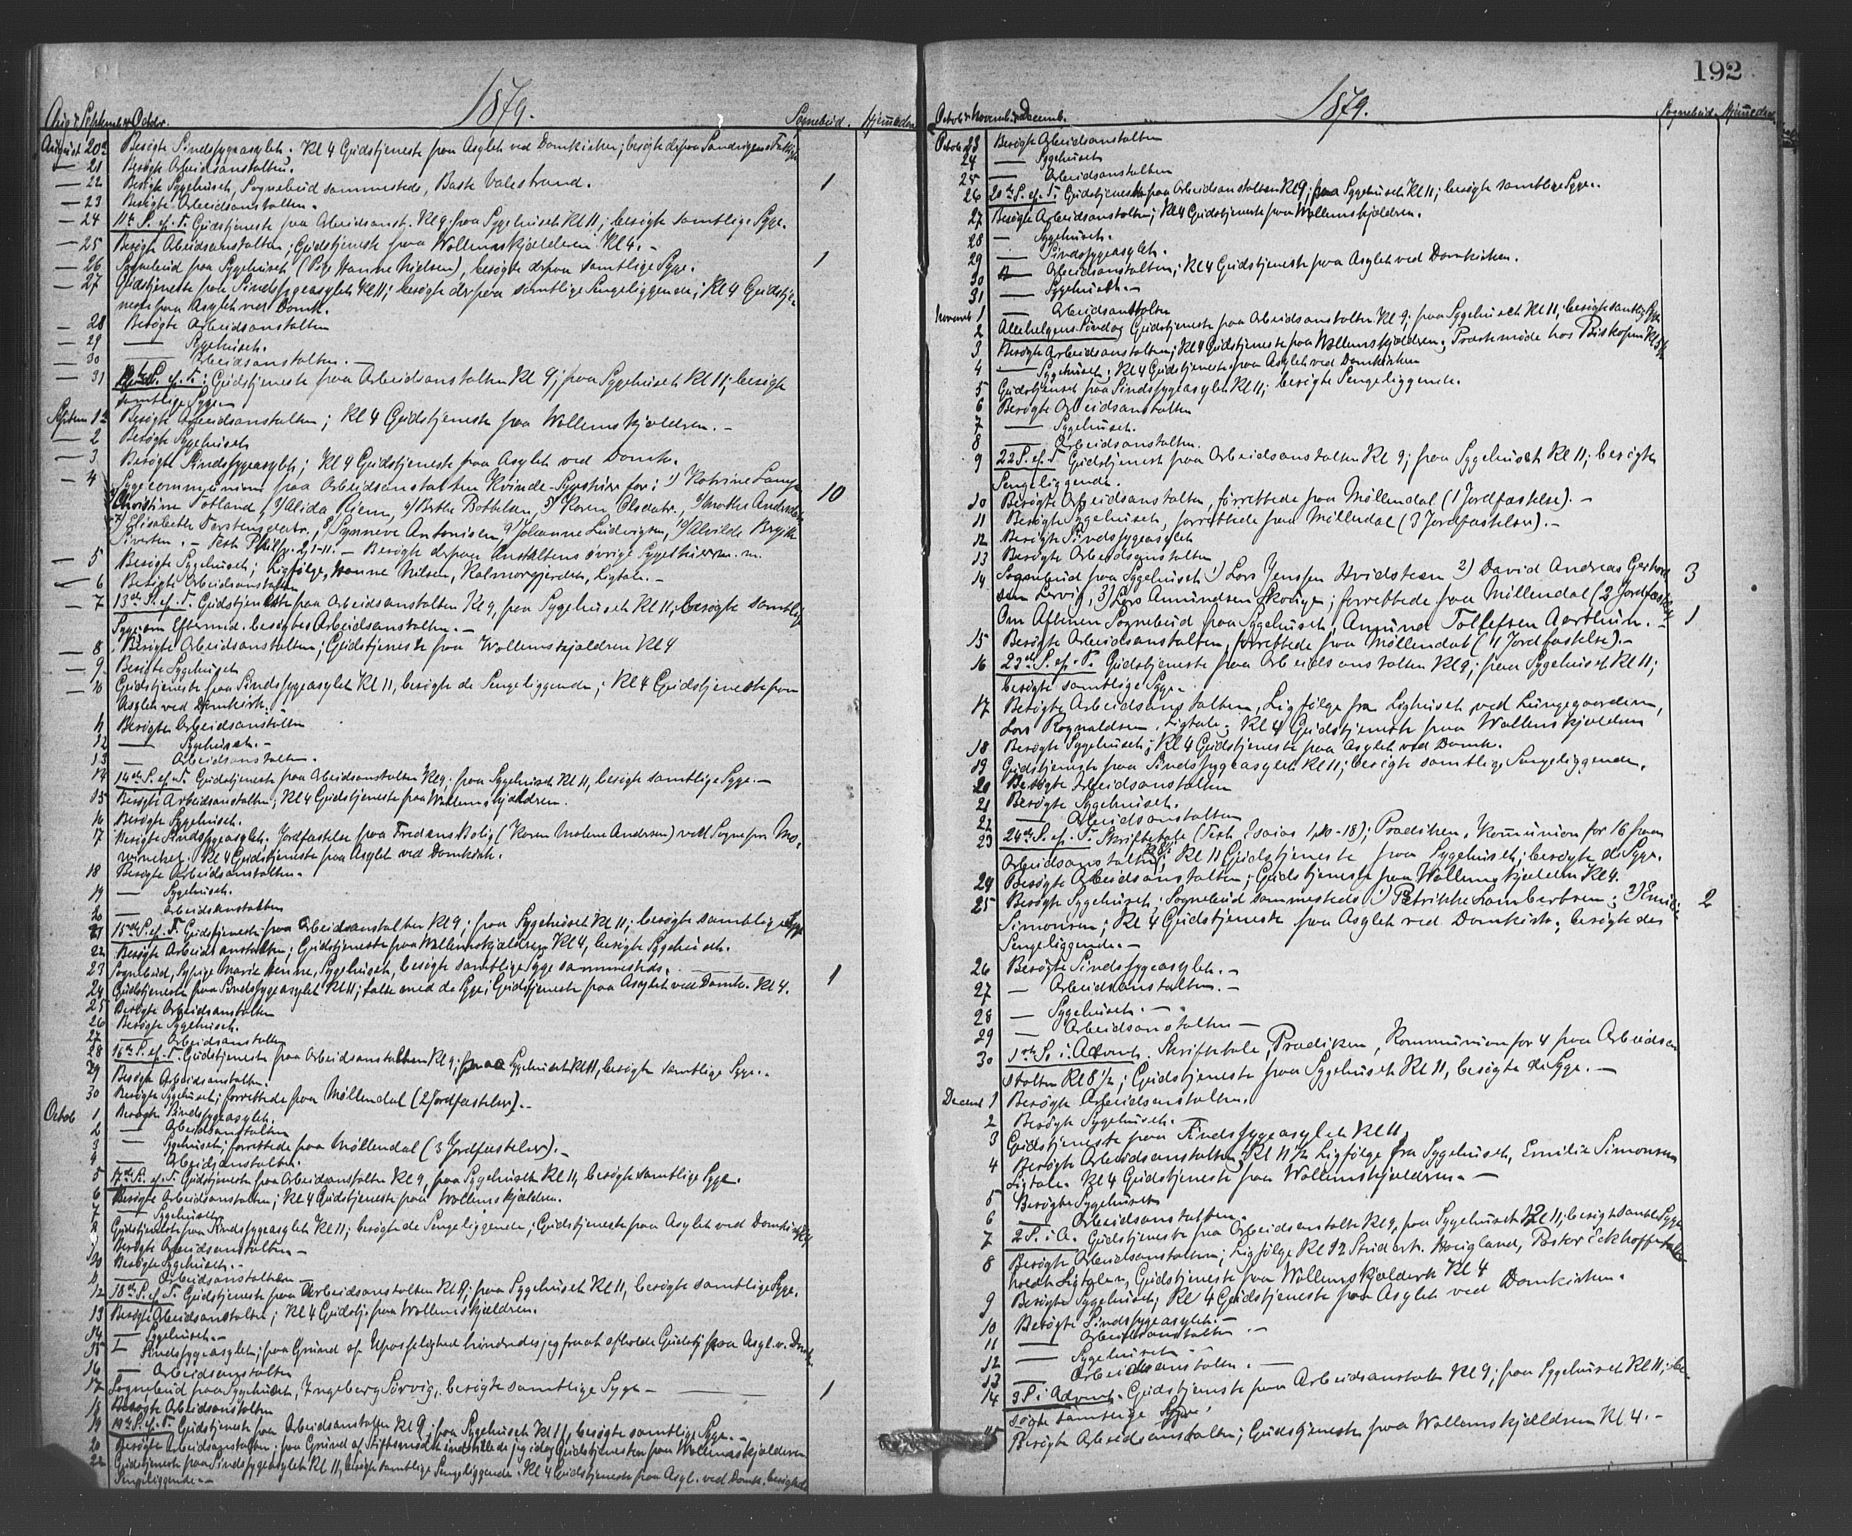 1879.
Aug. & September Octobr.
Sognebud. Hjemmedøbt
August 20de Besøgte Sindssygeasylet. Kl 4 Gudstjeneste paa Asylet ved Domkirken; besøgte
— 21 Besøgte Arbeidsanstalten.
— 22 Besøgte Sygehuset, Sognebud sammesteds, Valestrand. 1
— 23 Besøgte Arbeidsanstalten.
— 24 11te S. ef. T. Gudstjeneste paa Arbeidsanst. Kl 9, paa Sygehuset Kl 11, besøgte samtlige Syge.
— 25 Besøgte Arbeidsanstalten; Gudstjeneste paa Wollemskjælderen Kl 4. —
— 26 Sognebud paa Sygehuset (Hanne Nielsen), besøgte derpaa samtlige Syge. 1
— 27 Gudstjeneste paa Sindssygeasylet Kl 11; besøgte derpaa samtlige Sengeliggende; Kl 4 Gudstje-
neste paa Asylet ved Domk.
— 28 Besøgte Arbeidsanstalten
— 29 — Sygehuset.
— 30 — Arbeidsanstalten. —
— 31 12te S. ef. T.: Gudstjeneste paa Arbeidsanstalten Kl 9; paa Sygehuset Kl 11; besøgte
samtlige Syge —
Septem 1ste Besøgte Arbeidsanstalten; Kl 4 Gudstjeneste paa Wollemskjælderen. —
— 2 Besøgte Sygehuset
— 3 Besøgte Sindssygeasylet; Kl 4 Gudstjeneste paa Asylet ved Domk.
— 4 Sygecommunion paa Arbeidsanstalten Kvinde-Sygestue for: 1) Katrine 10
2) Christine Totland, 3) Alida 4) Berthe 5) Karen Olsdatr., 6)
7) Elisabeth Torstensdatr, 8) Synneve Antonisen, 9) Johanne Ludvigsen, 10) Alvilde
Sivertsen. — Text 2,1-11. — Besøgte derpaa Anstaltens øvrige Sygestuer m. m.
— 5 Besøgte Sygehuset; Ligfølge, Hanne Nilsen, Ligtale. —
— 6 Besøgte Arbeidsanstalten
— 7 13de S. ef. T. Gudstjeneste paa Arbeidsanstalten Kl 9, paa Sygehuset Kl 11, besøgte samtlig
Syge; om Eftermid. besøgtes Arbeidsanstalten. —
— 8 Besøgte Arbeidsanstalten; Gudstjeneste paa Wollemskjælderen Kl 4
— 9 Besøgte Sygehuset
— 10 Gudstjeneste paa Sindssygeasylet Kl 11, besøgte de Sengeliggende; Kl 4 Gudstjeneste paa
Asylet ved Domkirk. —
11 Besøgte Arbeidsanstalten
12 — Sygehuset. —
13 — Arbeidsanstalten.
14 14de S. ef. T. Gudstjeneste paa Arbeidsanstalten Kl 9; paa Sygehuset Kl 11, besøgte samtlige Syge. —
15 Besøgte Arbeidsanstalten; Kl 4 Gudstjeneste paa Wollemskjælderen.
16 Besøgte Sygehuset.
17 Besøgte Sindssygeasylet. Jordfæstelse paa Fredensbolig (Karen Malene Andersen) ved Sognepr.
Kl 4 Gudstjeneste paa Asylet ved Domkirk.
18 Besøgte Arbeidsanstalten.
19 — Sygehuset.
20 — Arbeidsanstalten
21 15de S. ef. T. Gudstjeneste paa Arbeidsanstalten Kl 9; paa Sygehuset Kl 11; besøgte samtlige Syge
22 Besøgte Arbeidsanstalten; Gudstjeneste paa Wollemskjælderen Kl 4, besøgte Sygehuset.
23 Sognebud, Sypige Marie Henne, Sygehuset, besøgte samtlige Syge sammesteds. — 1
24 Gudstjeneste paa Sindssygeasylet Kl 11; talte med de Syge; Gudstjeneste paa Asylet ved Domk. Kl 4.
25 Besøgte Arbeidsanstalten
26 Besøgte Sygehuset.
27 — Arbeidsanstalten
28 16de S. ef. T. Gudstjeneste paa Arbeidsanstalten Kl 9; paa Sygehuset Kl 11, besøgte samtlige Syge. —
29 Besøgte Arbeidsanstalten.
30 Besøgte Sygehuset; forrettede paa Møllendal (2 Jordfæstelser). —
Octob 1 Besøgte Sindssygeasylet.
2 — Arbeidsanstalten
3 — Sygehuset; forrettede paa Møllendal (3 Jordfæstelser). —
4 — Arbeidsanstalten.
5 17de S. ef. T. Gudstjeneste paa Arbeidsanstalten Kl 9, paa Sygehuset Kl 11, besøgte samtlige Syge.
6 Besøgte Arbeidsanstalten; Kl 4 Gudstjeneste paa Wollemskjælderen.
7 — Sygehuset
8 Gudstjeneste paa Sindssygeasylet Kl 11; besøgte de Sengeliggende; Gudstjeneste paa Asylet ved Domkirk Kl 4
9 Besøgte Arbeidsanstalten —
10 Besøgte Sygehuset. —
11 — Arbeidsanstalten —
12 18de S. ef. T. Gudstjeneste paa Arbeidsanstalten Kl 9; paa Sygehuset Kl 11, besøgte samtlige Syge.
13 Besøgte Arbeidsanstalten; Kl 4 Gudstj. paa Wollemskjælderen.
14 — Sygehuset. —
15 — Sindssygeasylet; paa Grund af Upasselighed hindredes jeg fra at afholde Gudstj. paa Asyl. v. Domk.
16 — Arbeidsanstalten
17 Sognebud paa Sygehuset, Ingeborg Sørvig, besøgte samtlige Syge — 1
18 Besøgte Arbeidsanstalten
19 19de S. ef. T. Gudstjeneste paa Arbeidsanstalten Kl 9; paa Sygehuset Kl 11, besøgte samtlige Syge. —
20 Besøgte Arbeidsanstalten; paa Grund af indstillede jeg idag Gudstjenesten paa Wollemskjælderen
22 Gudstjeneste paa Sindssygeasylet Kl 11, besøgte samtlige Sengeliggende. Kl 4 Gudstjeneste paa Asyl. ved Domk. besøgte de
Sengeliggende. —
192
1879.
Octob. Novemb. & Decemb.
Sognebud. Hjemmedøbt
Octob 23 Besøgte Arbeidsanstalten
24 — Sygehuset
25 — Arbeidsanstalten
26 20de S. ef. T. Gudstjeneste paa Arbeidsanstalten Kl 9; paa Sygehuset Kl 11; besøgte samtlige Syge.
27 Besøgte Arbeidsanstalten; Kl 4 Gudstjeneste paa Wollemskjælderen.
28 — Sygehuset.
29 — Sindssygeasylet.
30 — Arbeidsanstalten; Kl 4 Gudstjeneste paa Asylet ved Domkirken.
31 — Sygehuset. —
Novemb 1 — Arbeidsanstalten
2 Allehelgens Søndag Gudstjeneste paa Arbeidsanstalten Kl 9; paa Sygehuset Kl 11, besøgte samtlig Syge
3 Besøgte Arbeidsanstalten; Kl 4 Gudstjeneste paa Wollemskjælderen; Præstemøde hos Biskopen
4 — Sygehuset; Kl 4 Gudstjeneste paa Asylet ved Domkirken
5 Gudstjeneste paa Sindssygeasylet Kl 11; besøgte Sengeliggende.
6 Besøgte Arbeidsanstalten
7 — Sygehuset.
8 — Arbeidsanstalten.
9 22 S. ef. T. Gudstjeneste paa Arbeidsanstalten Kl 9; paa Sygehuset Kl 11; besøgte
Sengeliggende.
10 Besøgte Arbeidsanstalten, forrettede paa Møllendal (1 Jordfæstelse). —
11 Besøgte Sygehuset, forrettede paa Møllendal (3 Jordfæstelser). —
12 Besøgte Sindssygeasylet
13 Besøgte Arbeidsanstalten
14 Sognebud paa Sygehuset 1) Lars Jenssen Hvidsteen 2) David Andreas 3
sen Lervig, 3) Lars Amundsen; forrettede paa Møllendal (2 Jordfæstelser)
Om Aftenen Sognebud paa Sygehuset, Amund Tollefsen Aarthun. — 1
15 Besøgte Arbeidsanstalten, forrettede paa Møllendal (1 Jordfæstelse). —
16 23de S. ef. T. Gudstjeneste paa Arbeidsanstalten Kl 9; paa Sygehuset Kl 11;
besøgte samtlige Syge.
17 Besøgte Arbeidsanstalten, Ligfølge fra Lighuset ved Lungegaarden,
Lars Rognaldsen, Ligtale. Kl 4 Gudstjeneste paa Wollemskjælderen
18 Besøgte Sygehuset; Kl 4 Gudstjeneste paa Asylet ved Domk.
19 Gudstjeneste paa Sindssygeasylet Kl 11; besøgte samtlige Sengeliggende.
20 Besøgte Arbeidsanstalten
21 Besøgte Sygehuset.
22 — Arbeidsanstalten
23 24de S. ef. T. Skriftetale (Text Esaias 1,10-18); Prædiken, Kommunion for 16 paa
Arbeidsanstalten; Kl 11 Gudstjeneste paa Sygehuset; besøgte de Syge.
24 Besøgte Arbeidsanstalten; Gudstjeneste paa Wollemskjælderen Kl 4.
25 Besøgte Sygehuset; Sognebud sammesteds 1) Petrikke Lambertsen; 2) Emilie 2
Simonsen; Kl 4 Gudstjeneste paa Asylet ved Domkirk; besøgte des
Sengeliggende. —
26 Besøgte Sindssygeasylet. —
27 — Arbeidsanstalten. —
28 — Sygehuset. —
29 — Arbeidsanstalten —
30 1ste S. i Advent. Skriftetale, Prædiken, Kommunion for 4 paa Arbeidsan
stalten Kl 8 1/2; Gudstjeneste paa Sygehuset Kl 11, besøgte de Syge. —
Decemb 1 Besøgte Arbeidsanstalten.
2 Besøgte Sygehuset.
3 Gudstjeneste paa Sindssygeasylet Kl 11.
4 Besøgte Arbeidsanstalten; Kl 11 1/2 Ligfølge fra Sygehuset, Emilie Simonsen
Ligtale. Kl 4 Gudstjeneste paa Wollemskjælderen. —
5 Besøgte Sygehuset
6 — Arbeidsanstalten.
7 2 S. i A. Gudstjeneste paa Arbeidsanstalten Kl 9, paa Sygehuset Kl 11; besøgte samtl. Syge
8 Besøgte Arbeidsanstalten; Ligfølge Kl 12 Student. Haugland, Pastor Eckhoff
holdt Ligtalen, Gudstjeneste paa Wollemskjælderen Kl 4
9 Besøgte Sygehuset; Kl 4 Gudstjeneste paa Asylet ved Domkirken.
10 Besøgte Sindssygeasylet. —
11 — Arbeidsanstalten —
12 — Sygehuset
13 — Arbeidsanstalten. —
14 3 S. i Advent. Gudstjeneste paa Arbeidsanstalten Kl 9; paa Sygehuset Kl 11; be-
søgte samtlige Syge.
15 Besøgte Arbeidsanstalten; Gudstjeneste paa Wollemskjælderen Kl 4. —